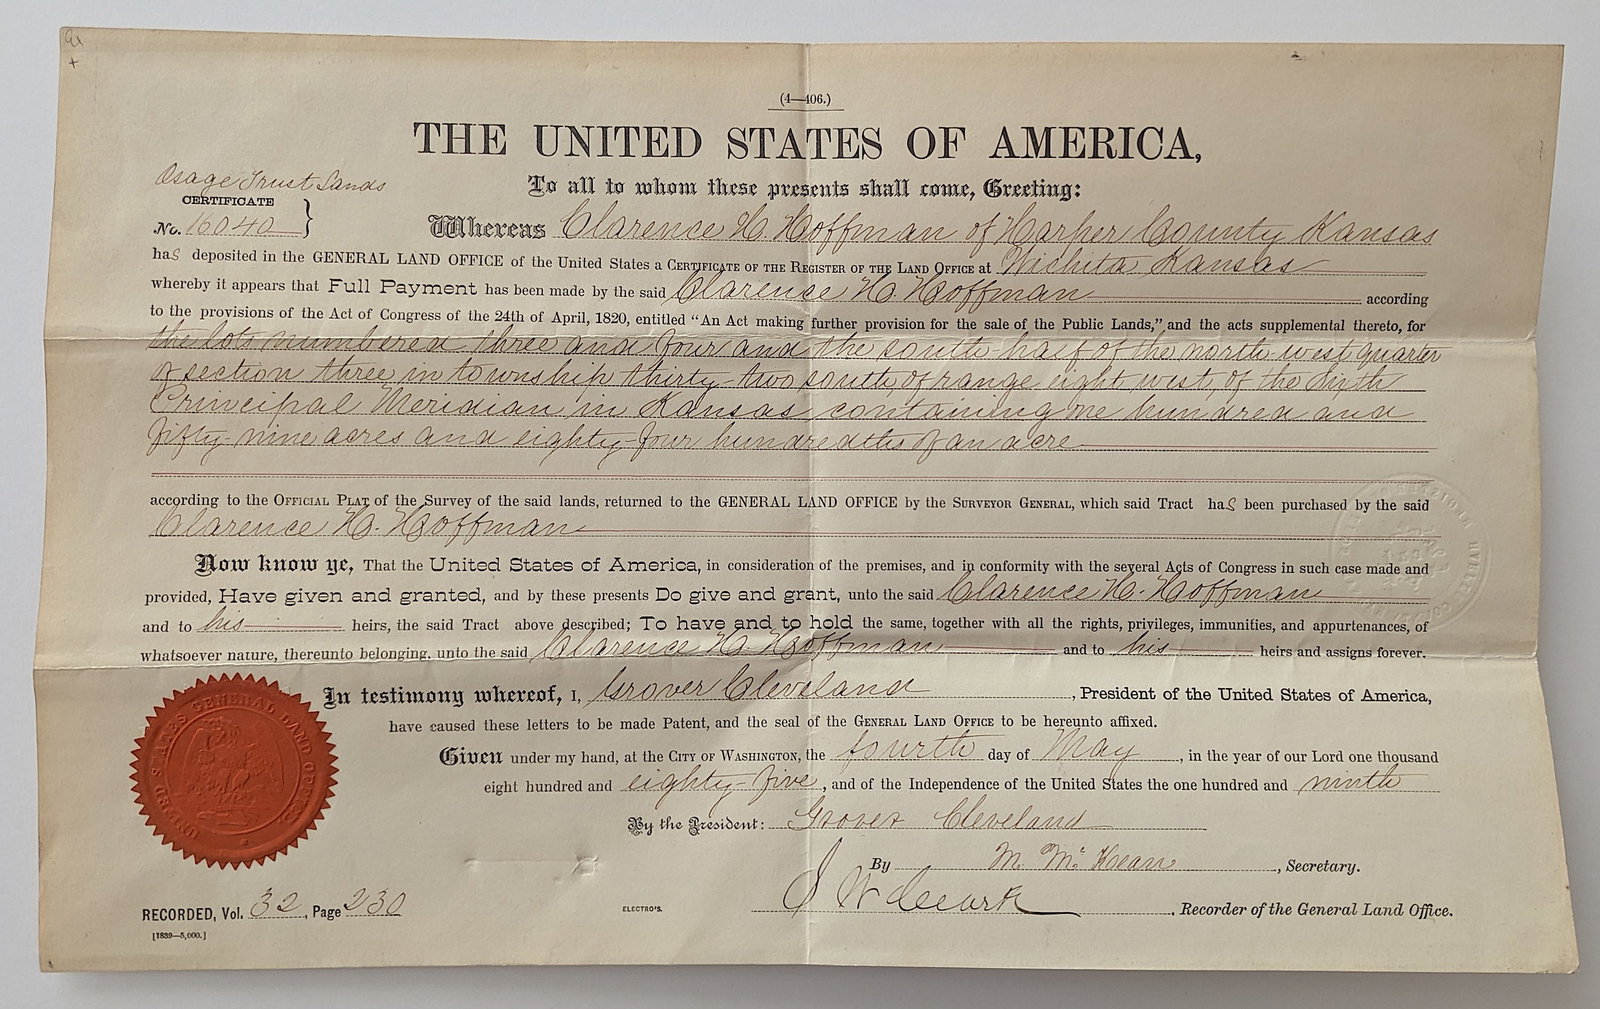 (4—406.)
THE UNITED STATES OF AMERICA,
Osage Trust Lands
To all to whom these presents shall come, Greeting:
CERTIFICATE
No. 16040
Whereas Clarence H. Hoffman of Harper County Kansas
has deposited in the GENERAL LAND OFFICE of the United States a CERTIFICATE OF THE REGISTER OF THE LAND OFFICE at Wichita Kansas
whereby it appears that Full Payment has been made by the said Clarence H. Hoffman according
to the provisions of the Act of Congress of the 24th of April, 1820, entitled “An Act making further provision for the sale of the Public Lands,” and the acts supplemental thereto, for
the lots numbered three and four and the south half of the north west quarter
of section three in township thirty-two, south, of range eight west, of the Sixth
Principal Meridian in Kansas containing one hundred and
fifty-nine acres and eighty-four hundredths of an acre
according to the OFFICIAL PLAT of the Survey of the said lands, returned to the GENERAL LAND OFFICE by the SURVEYOR GENERAL, which said Tract has been purchased by the said
Clarence H. Hoffman
Now know ye, That the United States of America, in consideration of the premises, and in conformity with the several Acts of Congress in such case made and
provided, Have given and granted, and by these presents Do give and grant, unto the said Clarence H. Hoffman
and to his heirs, the said Tract above described; To have and to hold the same, together with all the rights, privileges, immunities, and appurtenances, of
whatsoever nature, thereunto belonging, unto the said Clarence H. Hoffman and to his heirs and assigns forever.
In testimony whereof, I, Grover Cleveland, President of the United States of America,
have caused these letters to be made Patent, and the seal of the GENERAL LAND OFFICE to be hereunto affixed.
Given under my hand, at the CITY OF WASHINGTON, the fourth day of May, in the year of our Lord one thousand
eight hundred and eighty-five, and of the Independence of the United States the one hundred and ninth
By the President: Grover Cleveland
By M. McKean, Secretary.
S W Clark, Recorder of the General Land Office.
UNITED STATES GENERAL LAND OFFICE
RECORDED, Vol. 32, Page 230
ELECTRO'S.
[1839—5,000.]